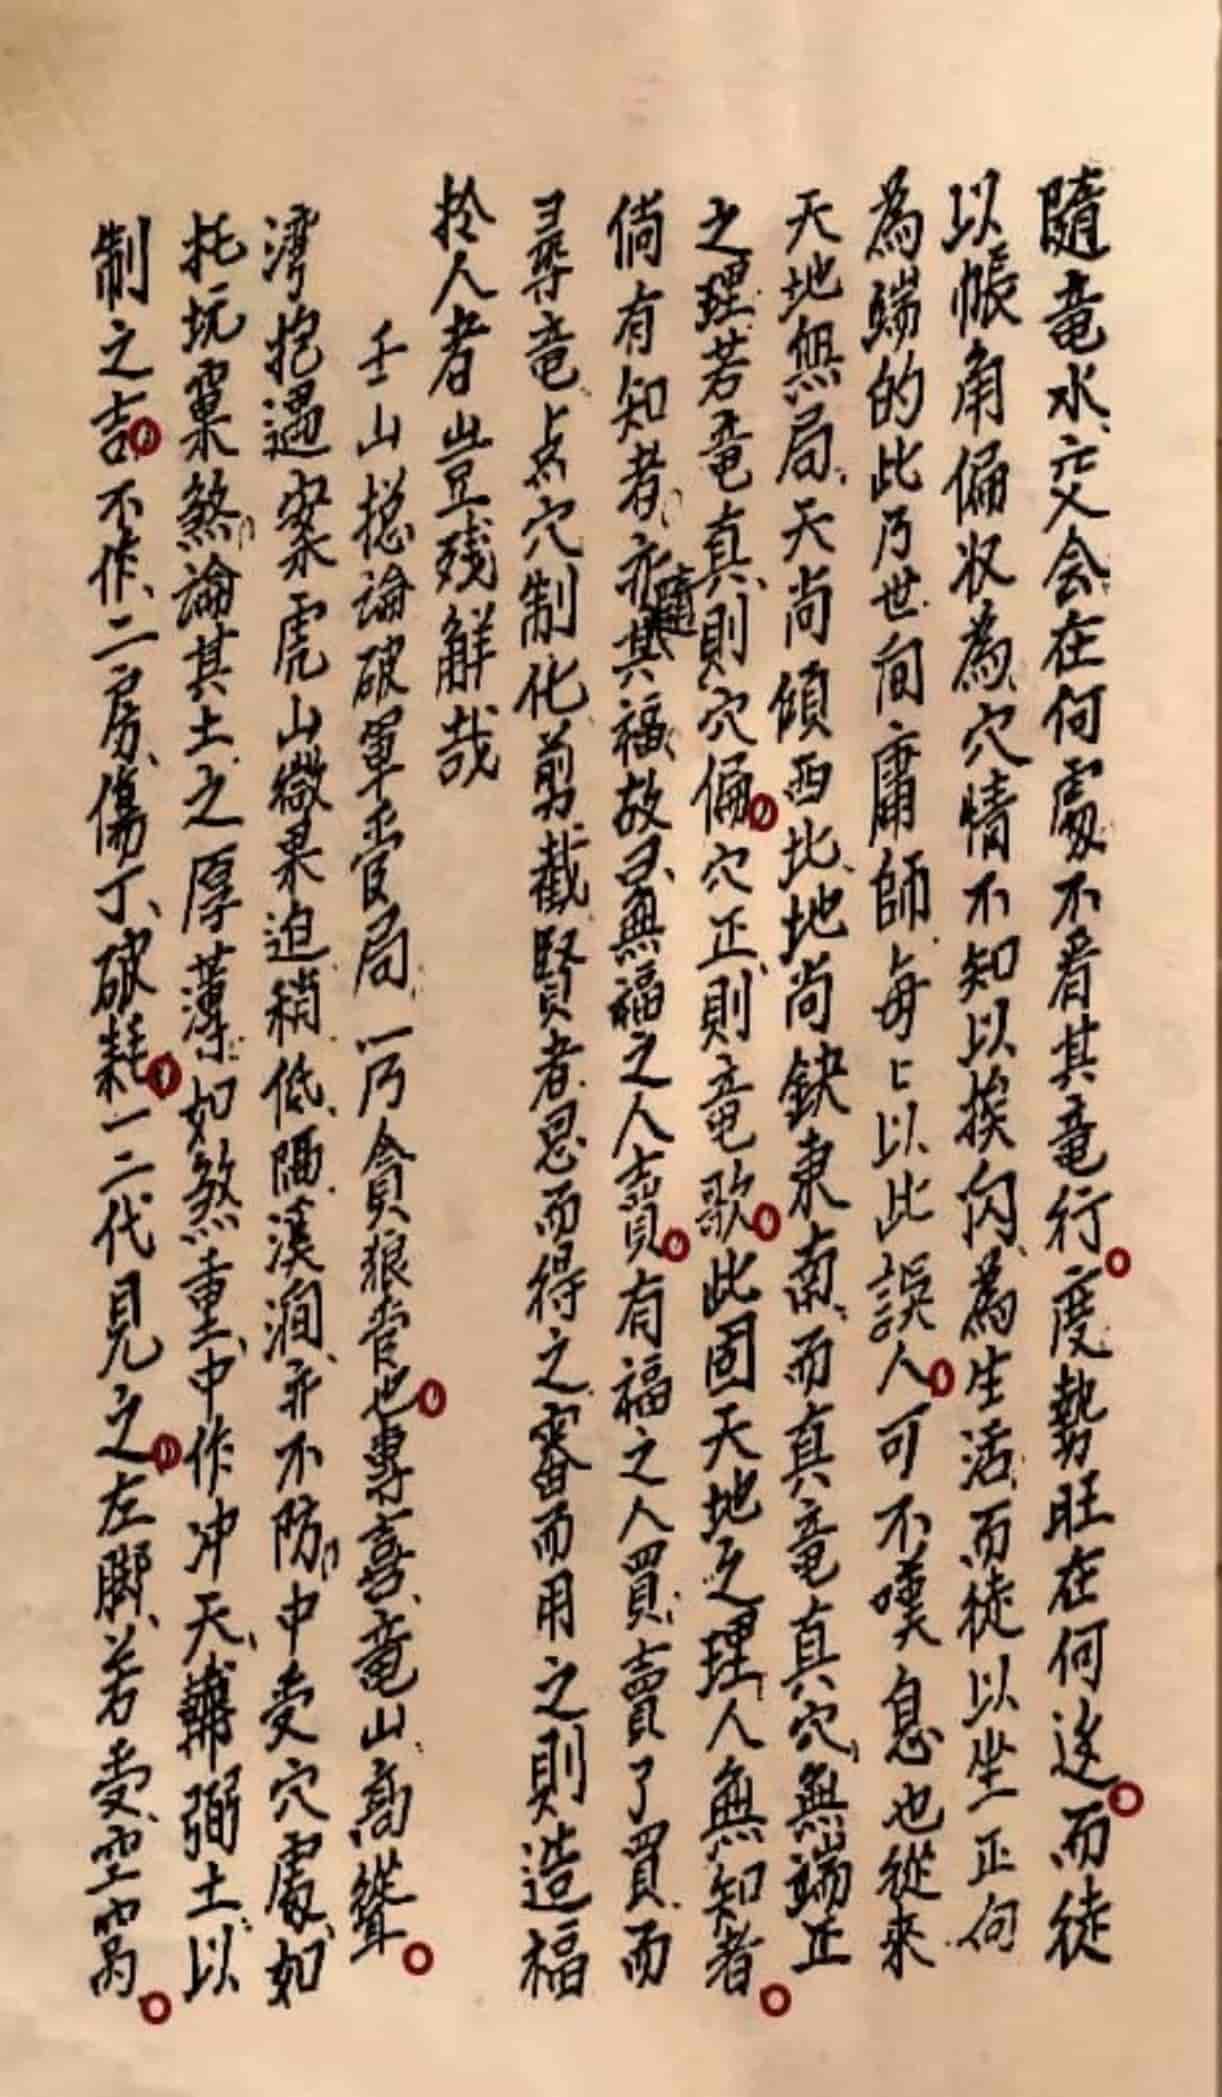 隨竜水交会在何處不看其竜行度勢旺在何送而徒
以帳角偏狀為穴情不知以挨闪為生活而徒以坐正向
為端的此乃世间庸師每々以此誤人可不嘆息也從來
天地無局天尚傾西北地尚鈌東南而真竜真穴無端正
之理若竜真則穴偏穴正則竜歌此固天地之理人無知者
倘有知者亦隨其福故忌無福之人賣有福之人買賣了買而
尋竜点穴制化剪截賢者忍而得之審而用之則造福
扵人者豈残鮮哉
壬山総論破軍管局一乃貪狼管也專喜竜山高聳
湾抱過案虎山微果迫稍低隔溪澗亦不防中受穴處如
托坑窠煞論其土之厚薄如煞重中作冲天輔弼土以
制之吉不作二房傷丁破耗一二代見之左脚若受空窩